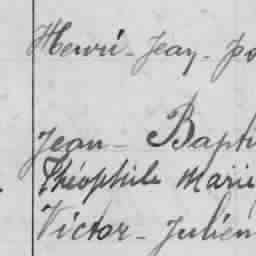 Henri - Jean - Jo
Jean - Bapti
Théophile Marie
Victor - Julien